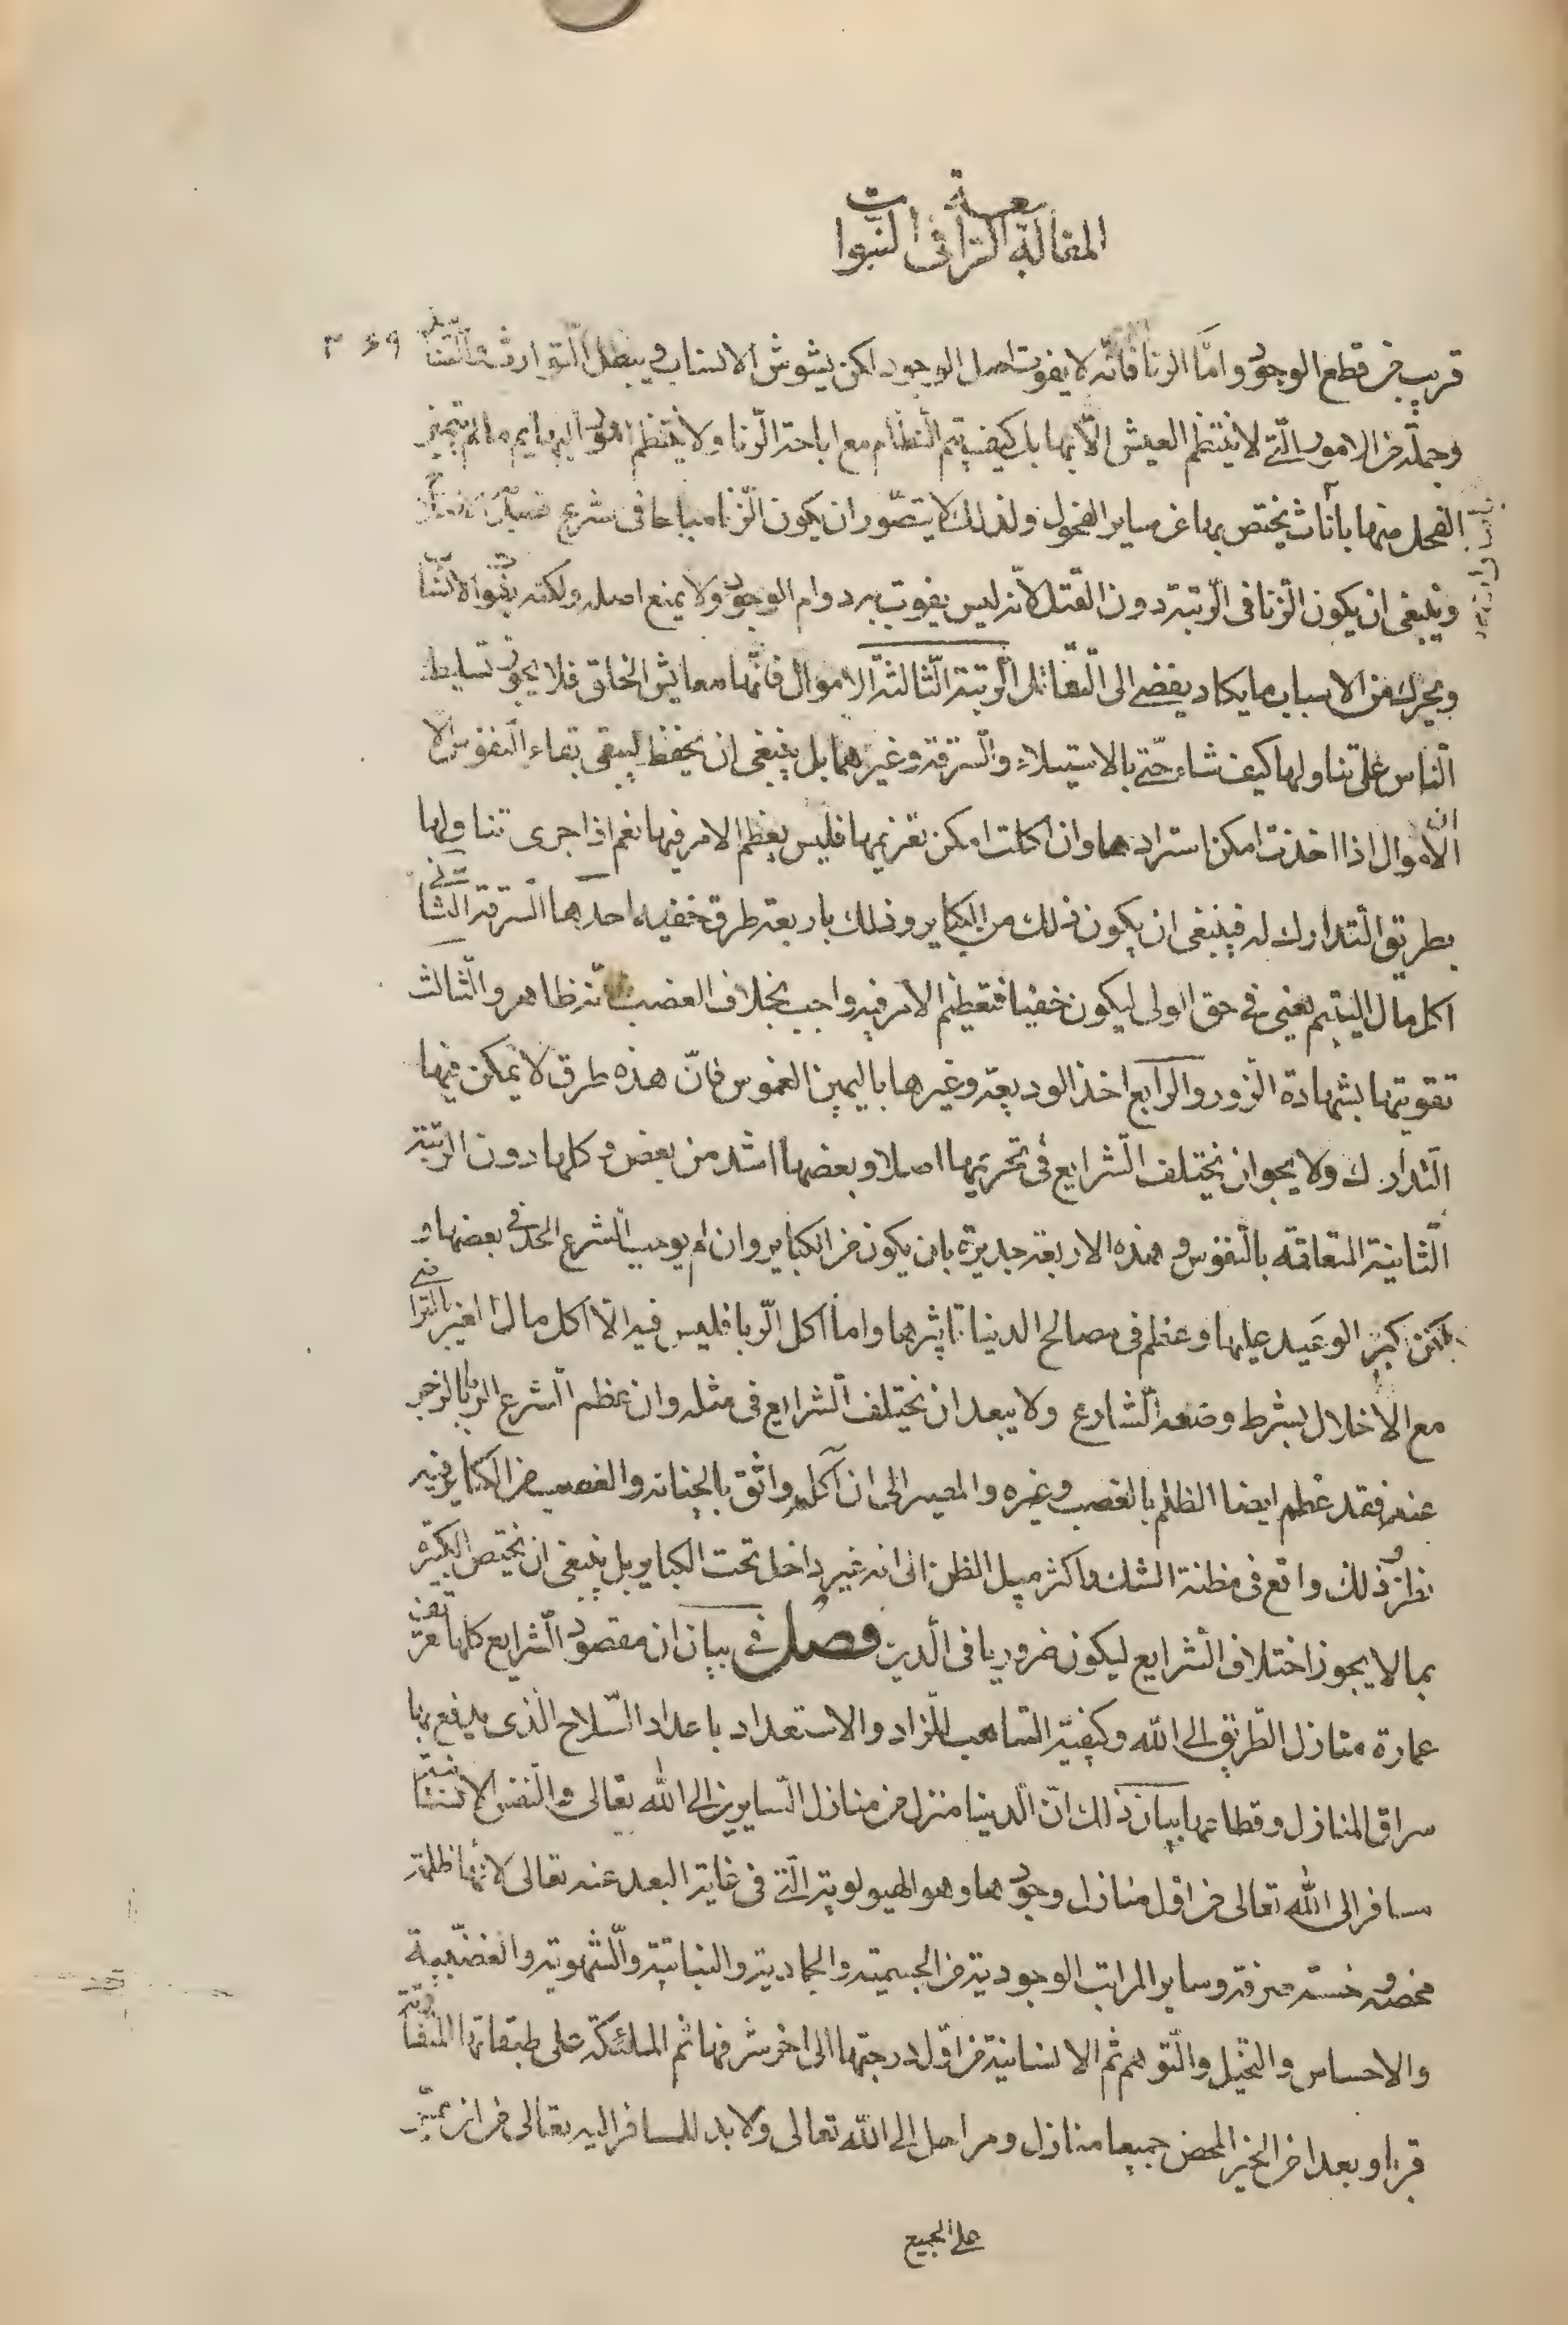 المقالة الرابعة في النبوات
٣٤٩
قريب من قطع الوجود واما الزنا فانّه لا يفوت اصل الوجود لكن يشوش الانساب ويبطل التوارث والتناسل
وجملة من الامور الّتي لا ينتظم العيش الّا بها بل كيف يتم النظام مع اباحة الزنا ولا ينتظم امور البهايم ما لم يتميز
الفحل منها باناث يختص بها عن ساير الفحول ولذلك لا يتصور ان يكون الزنا مباحا في شرع
وينبغى ان يكون الزنا في الرتبة دون القتل لانه ليس يفوت به دوام الوجود ولا يمنع اصله ولكنه يفوت الانساب
ويحرك من الاسباب ما يكاد يفضى الى التقاتل الرتبة الثالثة الاموال فانّها معايش الخلق فلا يجوز تسليط
الناس على تناولها كيف شاء حتّى بالاستيلاء والسرقة وغيرهما بل ينبغى ان يحفظ ليبقى بقاء النفوس الا
ان الاموال اذا اخذت امكن استرادها وان اكلت امكن تغريمها فليس يعظم الامر فيها نعم اذا جرى تناولها
بطريق التدارك له فينبغى ان يكون ذلك من الكباير وذلك باربعة طرق خفيه احدها السرقة الثانى
اكل مال اليتيم يعنى في حق الولى ليكون خفيا فتعظيم الامر فيه واجب بخلاف الغصب فانّه ظاهر والثالث
تفويتها بشهادة الزور والرابع اخذ الوديعة وغيرها باليمين الغموس فانّ هذه طرق لا يمكن فيها
التدارك ولا يجوز ان يختلف الشرايع في تحريمها اصلا وبعضها اشد من بعض وكلها دون الرتبة
الثانية المتعلقة بالنفوس وهذه الاربعة جديرة بان يكون من الكباير وان لم يوجب الشرع الحد في بعضها و
لكن كبر الوعيد عليها وعظم في مصالح الدنيا تاثيرها واما اكل الربا فليس فيه الّا اكل مال الغير بالتراضى
مع الاخلال بشرط وضعه الشارع ولا يبعد ان يختلف الشرايع في مثله وان عظم الشرع الربا بالزجر
عنه فقد عظم ايضا الظلم بالغصب وغيره والمصير الى ان اكله واثق بالجناته والغصب من الكباير فيه
نظر وذلك واقع في مظنة الشك واكثر ميل الظن الى انه غير داخل تحت الكباير بل ينبغى ان يختص الكبيرة
بما لا يجوز اختلاف الشرايع ليكون ضروريا في الدين فصل في بيان ان مقصود الشرايع كلها تعريف
عمارة منازل الطريق الى الله وكيفية التاهب للزاد والاستعداد باعداد السلاح الذى يدفع بها
سراق المنازل وقطاعها بيان ذلك انّ الدنيا منزل من منازل السايرين الى الله تعالى والنفس الانسانية
مسافر الى الله تعالى من اول منازل وجودها وهو الهيولوية الّتي في غاية البعد عنه تعالى لانها ظلمة
محضه وخسة صرفة وساير المراتب الوجودية من الجسمية والجمادية والنباتية والشهوية والغضبية
والاحساس والتخيل والتوهم ثم الانسانية من اوّل درجتها الى اخر شرفها ثم الملئكة على طبقاتها المتفاوتة
قربا وبعدا من الخير المحض جميعا منازل ومراحل الى الله تعالى ولا بد للمسافر اليه تعالى من ان يمر
على الجميع